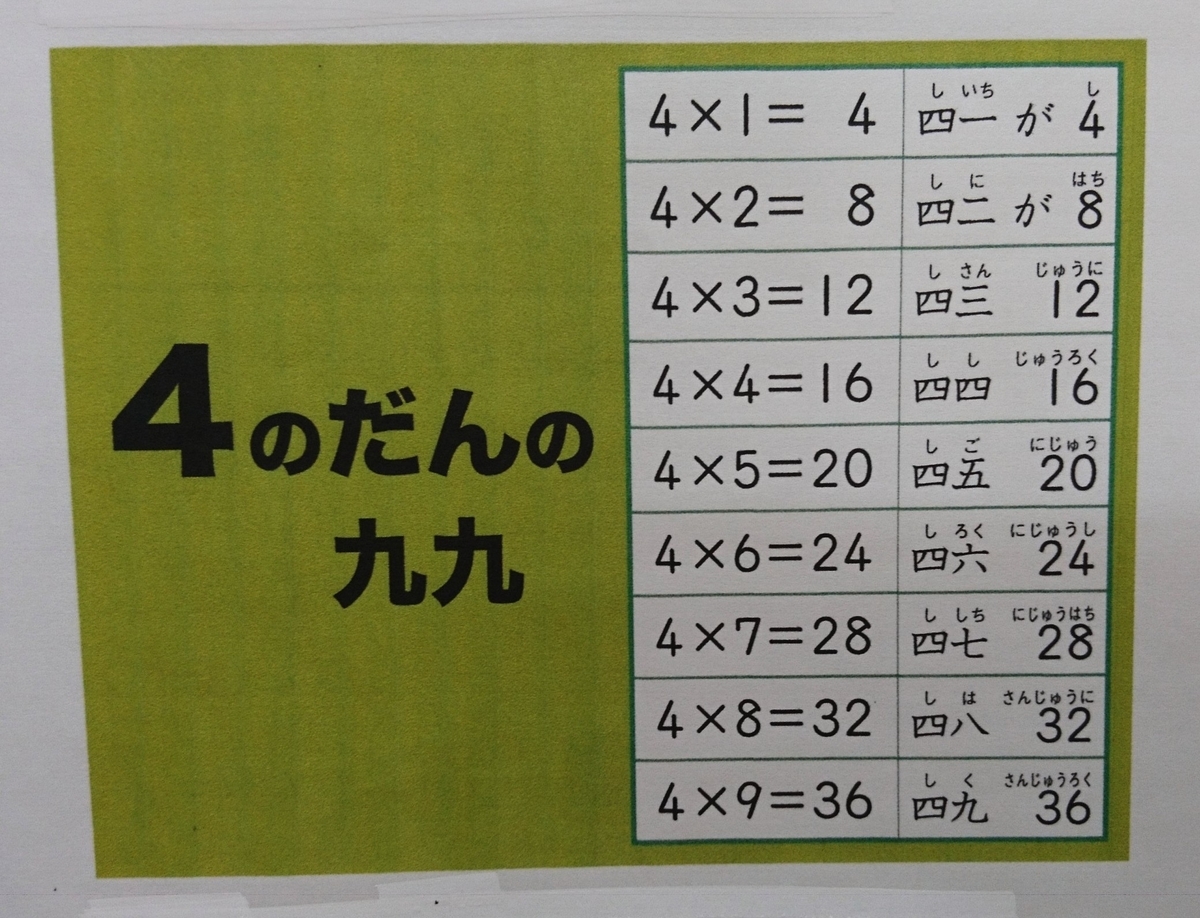 4のだんの
九九
4×1= 4
し いち し
四一 が 4
4×2= 8
し に はち
四二 が 8
4×3=12
し さん じゅうに
四三 12
4×4=16
し し じゅうろく
四四 16
4×5=20
し ご にじゅう
四五 20
4×6=24
し ろく にじゅうし
四六 24
4×7=28
し しち にじゅうはち
四七 28
4×8=32
し は さんじゅうに
四八 32
4×9=36
し く さんじゅうろく
四九 36